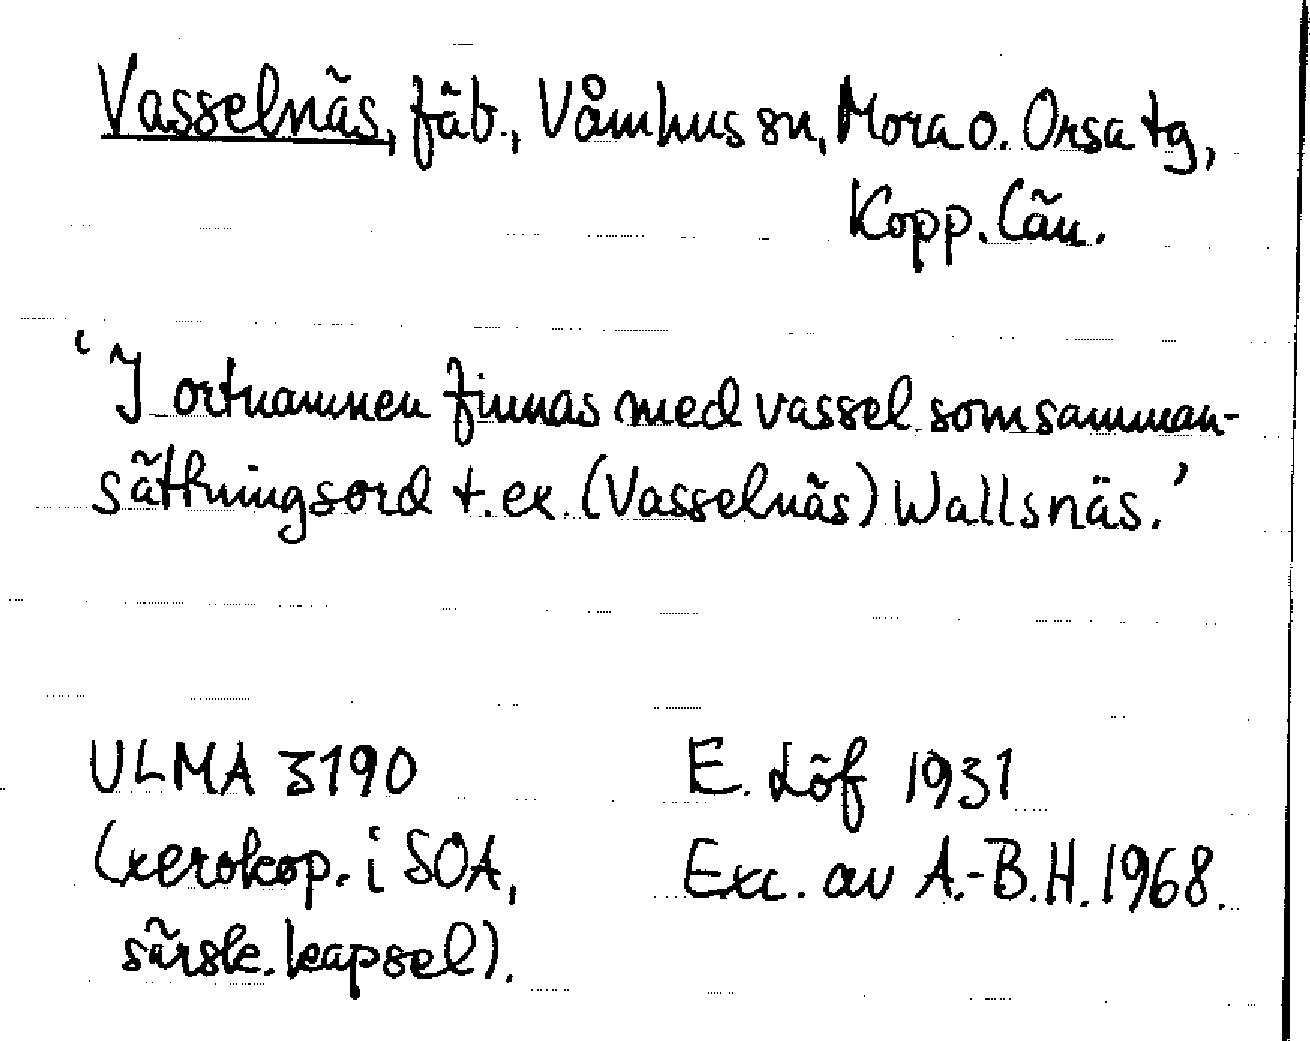 Vasselnäs, fäb., Våmhus sn, Mora o. Orsa tg,
Kopp. län.
'I ortnamnen finnas med vassel som samman-
sättningsord t.ex. (Vasselnäs) Wallsnäs.'
ULMA 3190
(xerokop. i SOA,
särsk. kapsel).
E. Löf 1931
Exc. av A.-B.H. 1968.